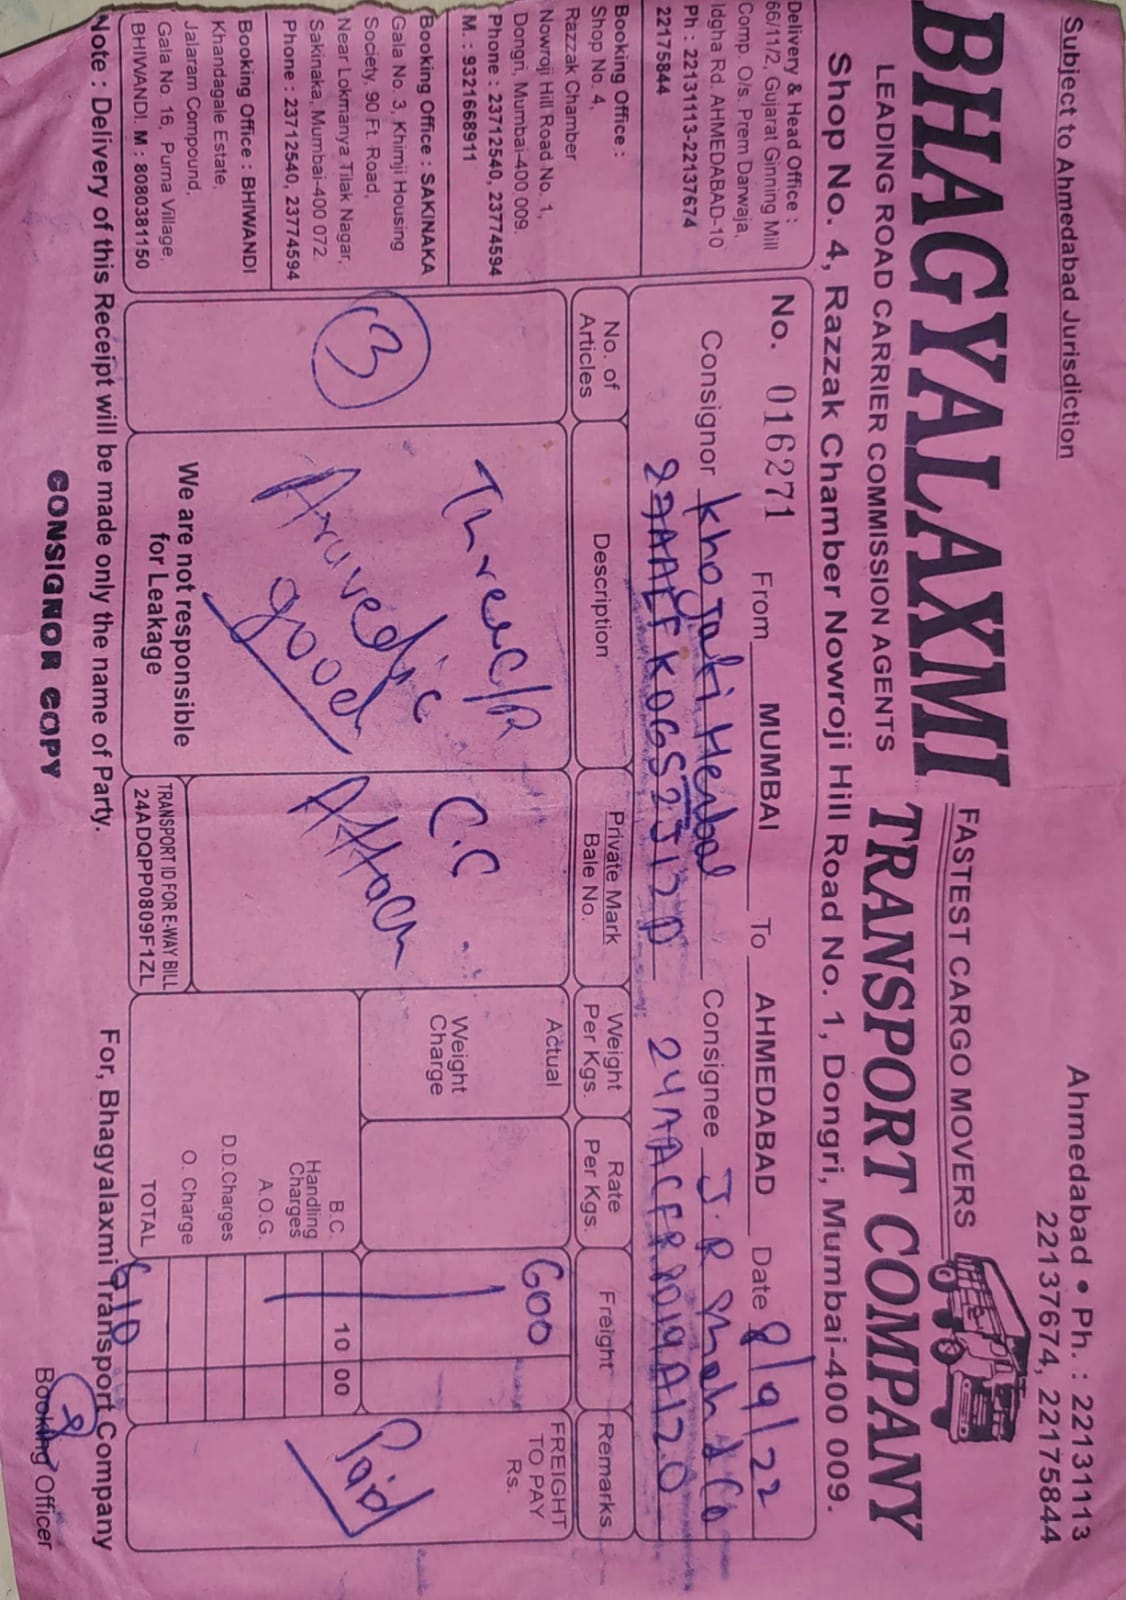 Subject to Ahmedabad Jurisdiction
Ahmedabad • Ph. : 22131113
22137674, 22175844
BHAGYALAXMI
FASTEST CARGO MOVERS
TRANSPORT COMPANY
LEADING ROAD CARRIER COMMISSION AGENTS
Shop No. 4, Razzak Chamber Nowroji Hill Road No. 1, Dongri, Mumbai-400 009.
Delivery & Head Office :
66/11/2, Gujarat Ginning Mill
Comp. O/s. Prem Darwaja,
Idgha Rd. AHMEDABAD-10
Ph : 22131113-22137674
22175844
Booking Office :
Shop No. 4,
Razzak Chamber
Nowroji Hill Road No. 1,
Dongri, Mumbai-400 009.
Phone : 23712540, 23774594
M. : 9321668911
Booking Office : SAKINAKA
Gala No. 3, Khimji Housing
Society, 90 Ft. Road,
Near Lokmanya Tilak Nagar,
Sakinaka, Mumbai-400 072.
Phone : 23712540, 23774594
Booking Office : BHIWANDI
Khandagale Estate,
Jalaram Compound,
Gala No. 16, Purna Village,
BHIWANDI. M : 8080381150
No. 016271 From MUMBAI To AHMEDABAD Date 8/9/22
Consignor Herbal Consignee J.R Shah & Co
No. of Articles
Description
Private Mark
Bale No.
Weight Per Kgs.
Rate Per Kgs.
Freight
Remarks
3
Three C/R
good
C.C
Attach
Actual
Weight Charge
600
FREIGHT TO PAY Rs.
Paid
B.C. 10 00
Handling Charges
A.O.G.
D.D.Charges
O. Charge
TOTAL 610
We are not responsible
for Leakage
TRANSPORT ID FOR E-WAY BILL
24ADQPP0809F1ZL
Note : Delivery of this Receipt will be made only the name of Party.
For, Bhagyalaxmi Transport Company
CONSIGNOR COPY
Booking Officer